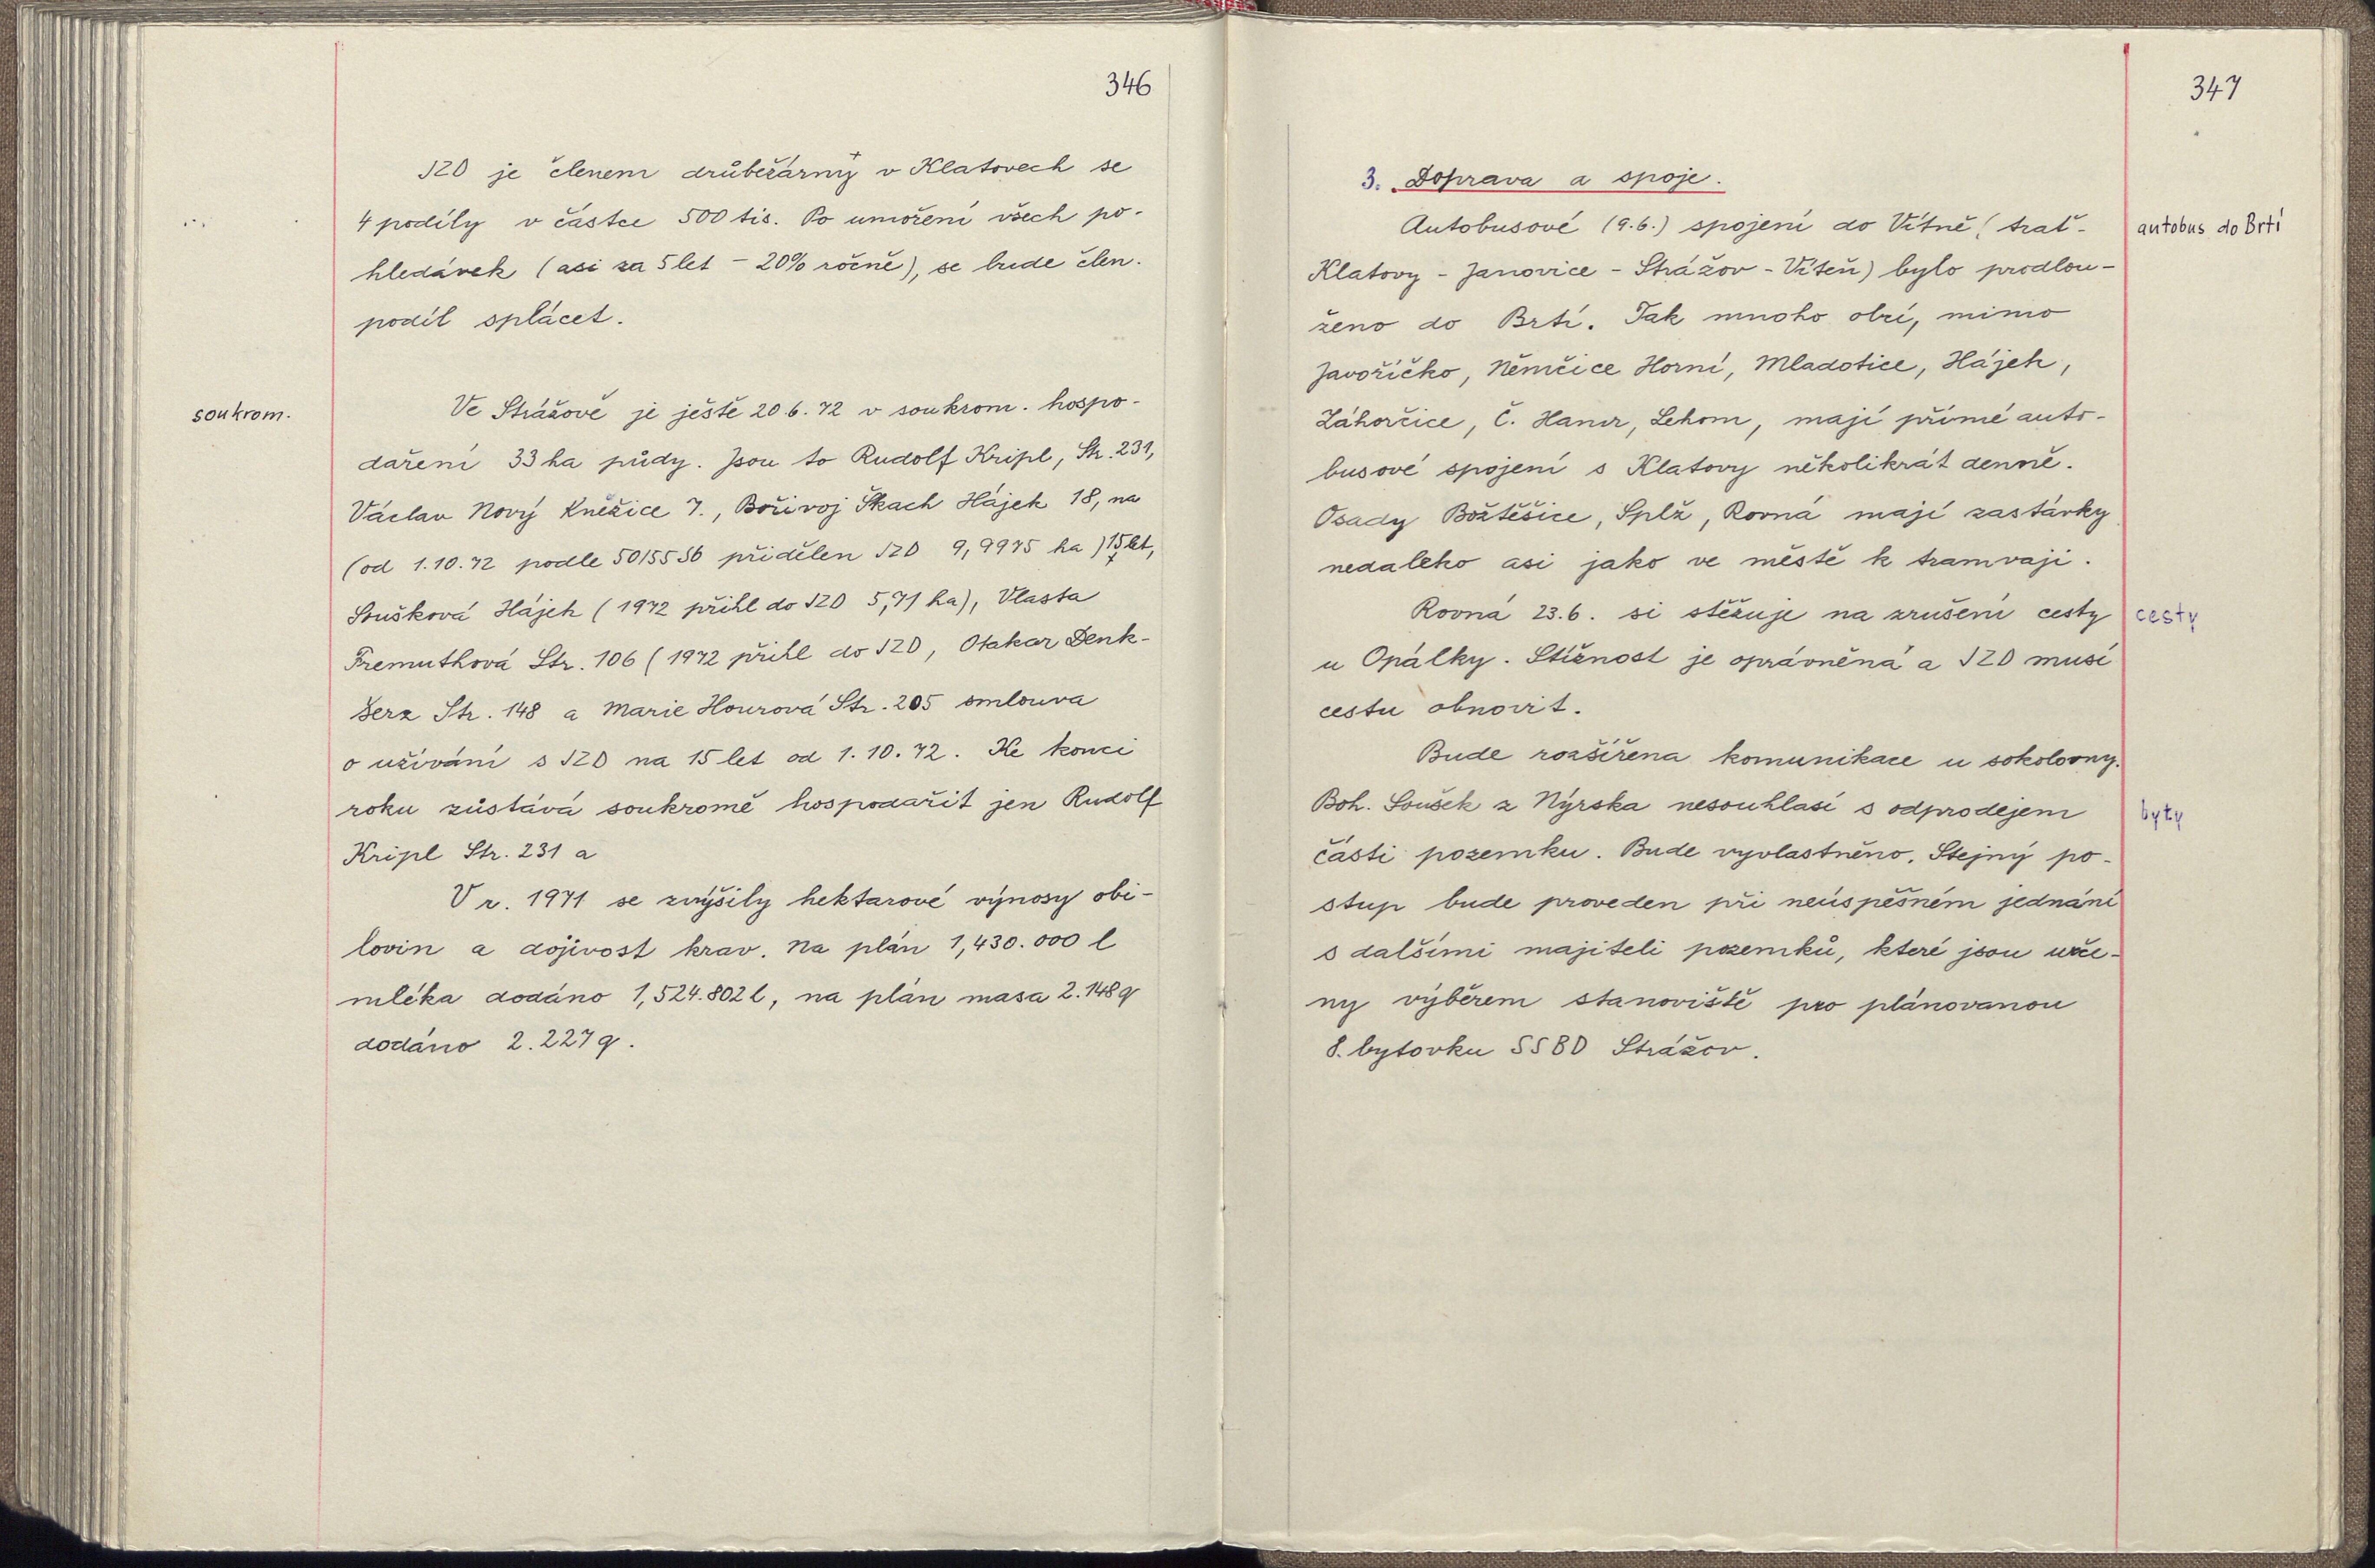 346
JZD je členem drůbežárny v Klatovech se
4 podíly v částce 500 tis. Po umoření všech po-
hledávek (asi za 5 let - 20% ročně), se bude člen.
podíl splácet.
soukrom.
Ve Strážově je ještě 20.6.72 v soukrom. hospo-
daření 33 ha půdy. Jsou to Rudolf Kripl, Str. 231,
Václav Nový Kněžice 7., Bořivoj Škach Hájek 18, na
(od 1.10.72 podle 50/55 Sb přidělen JZD 9,9975 ha) 15 let,
Soušková Hájek (1972 přihl do JZD 5,71 ha), Vlasta
Fremuthová Str. 106 (1972 přihl do JZD, Otakar Denk-
Str. 148 a Marie Hourová Str. 205 smlouva
o užívání s JZD na 15 let od 1.10.72. Ke konci
roku zůstává soukromě hospodařit jen Rudolf
Kripl Str. 231 a
V r. 1971 se zvýšily hektarové výnosy obi-
lovin a dojivost krav. Na plán 1,430.000 l
mléka dodáno 1,524.802 l, na plán masa 2.148 q
dodáno 2.227 q.
347
3. Doprava a spoje.
Autobusové (9.6.) spojení do Vítně (trať-
autobus do Brtí
Klatovy - Janovice - Strážov - Víteň) bylo prodlou-
ženo do Brtí. Tak mnoho obcí, mimo
Javoříčko, Němčice Horní, Mladotice, Hájek,
Záhorčice, Č. Hamr, Lehom, mají přímé auto-
busové spojení s Klatovy několikrát denně.
Osady Božtěšice, Splž, Rovná mají zastávky
nedaleko asi jako ve městě k tramvaji.
Rovná 23.6. si stěžuje na zrušení cesty
cesty
u Opálky. Stížnost je oprávněná a JZD musí
cestu obnovit.
Bude rozšířena komunikace u sokolovny.
Boh. Soušek z Nýrska nesouhlasí s odprodejem
byty
části pozemku. Bude vyvlastněno. Stejný po-
stup bude proveden při neúspěšném jednání
s dalšími majiteli pozemků, které jsou urče-
ny výběrem stanoviště pro plánovanou
8. bytovku SSBD Strážov.